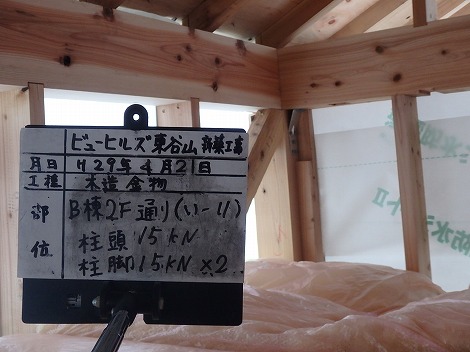 ビューヒルズ東谷山 新築工事
月日 H29年4月21日
工種 木造金物
部位 B棟2F通り(い-11)
柱頭 15KN
柱脚 15KN ×2
防水シートII